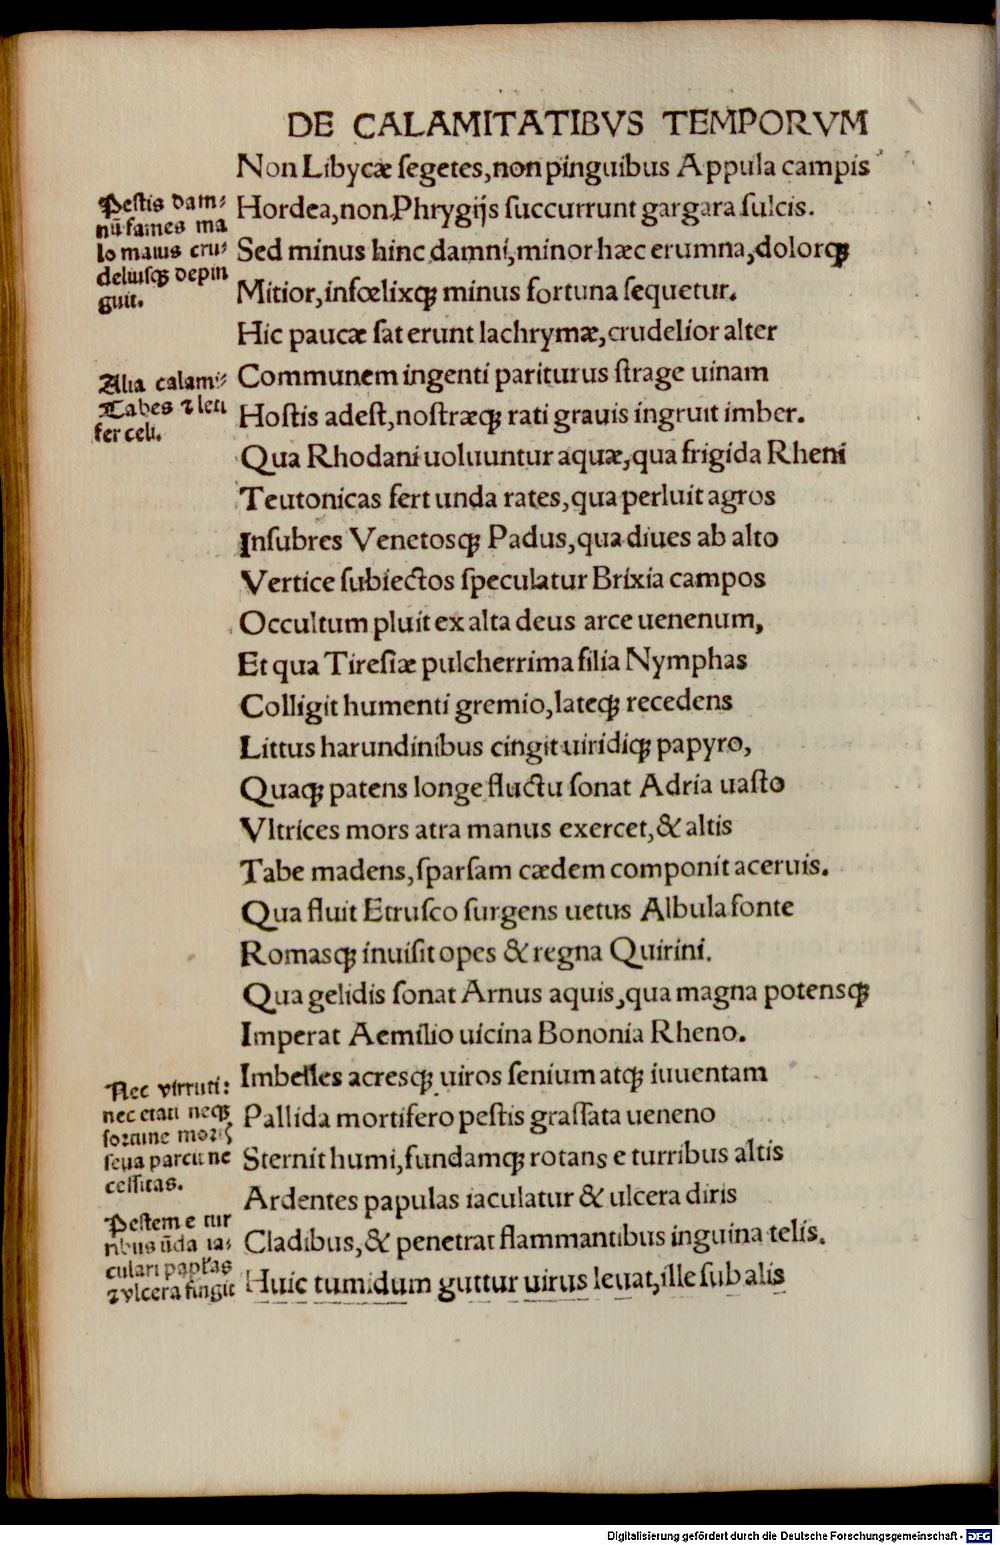 DE CALAMITATIBVS TEMPORVM
Non Libycæ ſegetes,non pinguibus Appula campis
Hordea,non Phrygijs ſuccurrunt gargara ſulcis.
Sed minus hinc damni,minor hæc erumna,dolorqꝫ
Mitior,infœlixqꝫ minus fortuna ſequetur.
Hic paucæ ſat erunt lachrymæ,crudelior alter
Communem ingenti pariturus ſtrage uinam
Hoſtis adeſt,noſtræqꝫ rati grauis ingruit imber.
Qua Rhodani uoluuntur aquæ,qua frigida Rheni
Teutonicas fert unda rates,qua perluit agros
Inſubres Venetosqꝫ Padus,qua diues ab alto
Vertice ſubiectos ſpeculatur Brixia campos
Occultum pluit ex alta deus arce uenenum,
Et qua Tireſiæ pulcherrima filia Nymphas
Colligit humenti gremio,lateqꝫ recedens
Littus harundinibus cingit uiridiqꝫ papyro,
Quaqꝫ patens longe fluctu ſonat Adria uaſto
Vltrices mors atra manus exercet,& altis
Tabe madens,ſparſam cædem componit aceruis.
Qua fluit Etruſco ſurgens uetus Albula fonte
Romasqꝫ inuiſit opes & regna Quirini.
Qua gelidis ſonat Arnus aquis,qua magna potensqꝫ
Imperat Aemilio uicina Bononia Rheno.
Imbelles acresqꝫ uiros ſenium atqꝫ iuuentam
Pallida mortifero peſtis graſſata ueneno
Sternit humi,fundamqꝫ rotans e turribus altis
Ardentes papulas iaculatur & ulcera diris
Cladibus,& penetrat flammantibus inguina telis.
Huic tumidum guttur uirus leuat,ille ſub alis
Peſtis dam⸗
nū fames ma
lo maius cru⸗
deliuſqꝫ depin
guit.
Alia calami⸗
Tabes ⁊ leti
fer celi.
Nec virtuti:
nec etati neqꝫ
fortune mortꝭ
ſeua parcit ne
ceſſitas.
Peſtem e tur
ribus ūda ia⸗
culari papl̓as
⁊ vlcera fingit
Digitalisierung gefördert durch die Deutsche Forschungsgemeinschaft - DFG